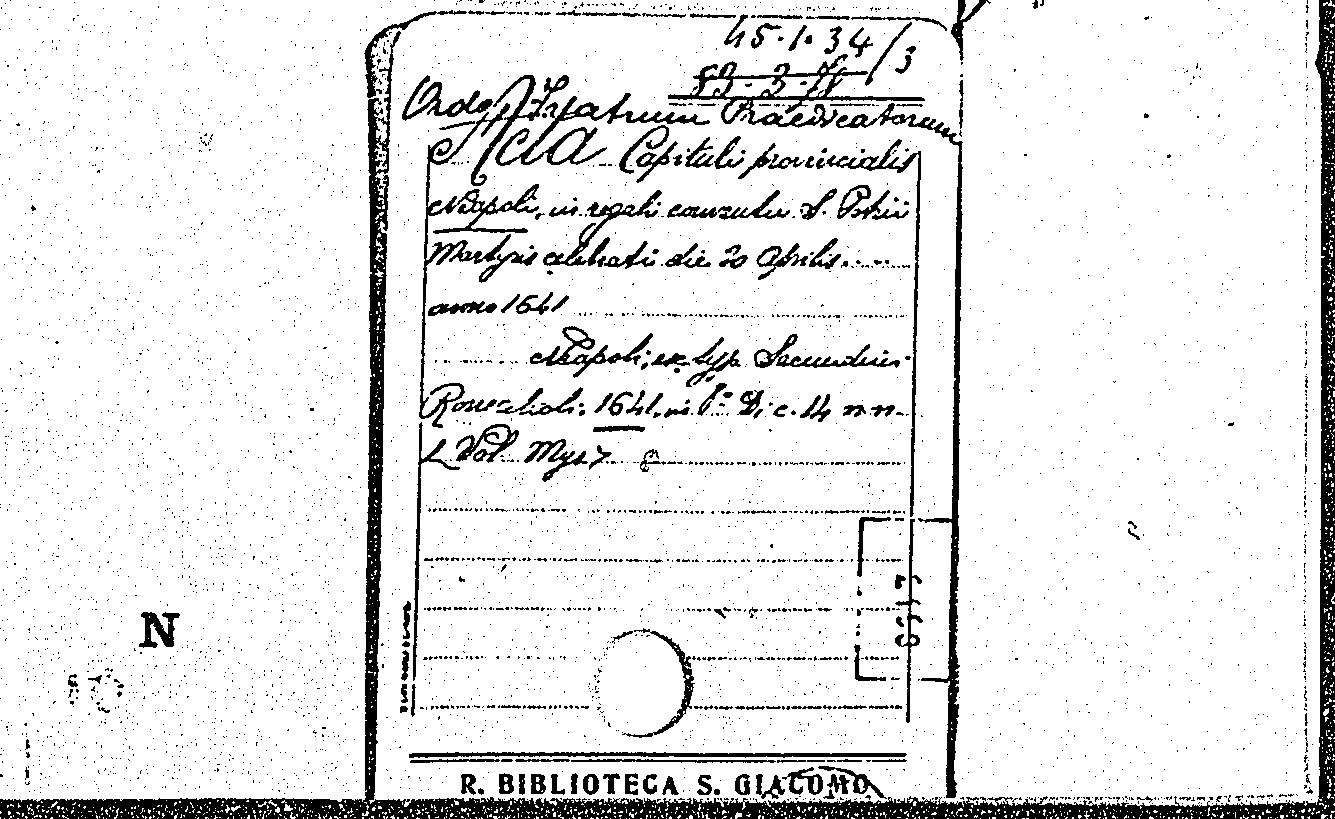 45.1.34/3
53.3.78
Ordo Fratrum Praedicatorum
Acta Capituli provincialis
Neapoli, in regali conventu S. Petrii
Martyris celebrati die 20 Aprilis....
anno 1641
Neapoli, ex typ. Secundini
Roncalioli, 1641, in 8° Di c. 14 n n.
N
R. BIBLIOTECA S. GIACOMO